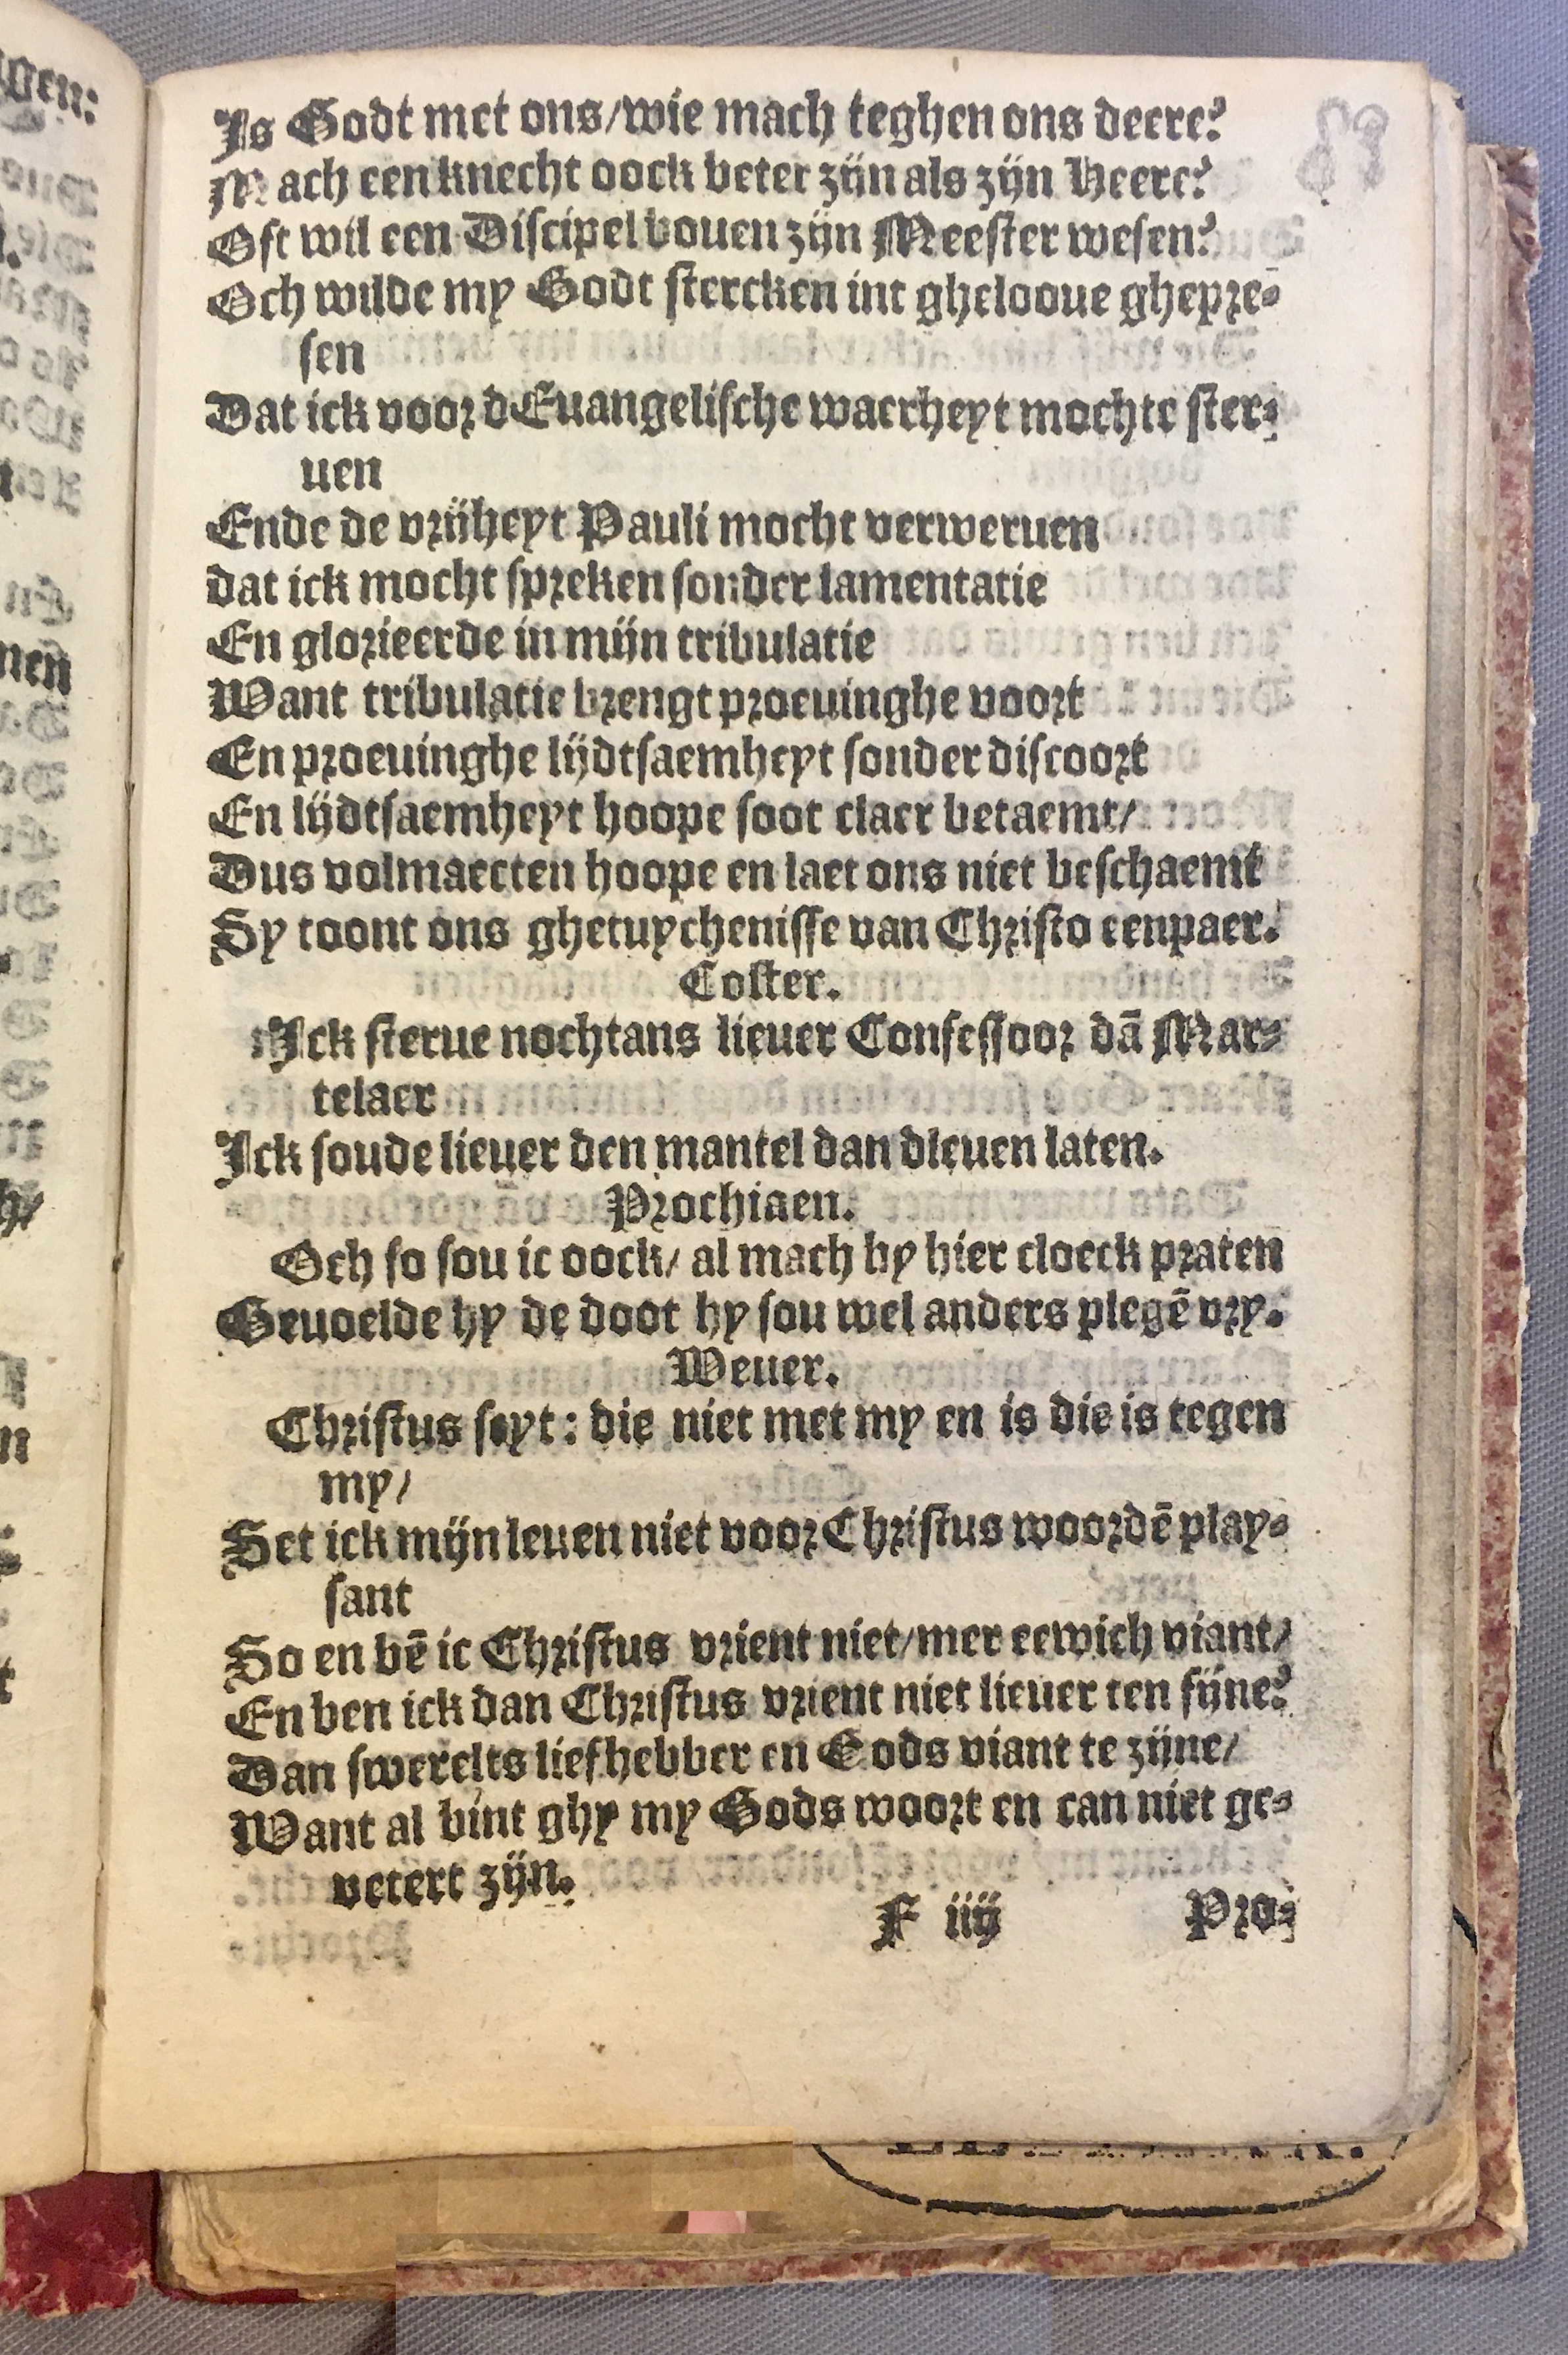 Is Godt met ons/wie mach teghen ons deere?
Mach een knecht oock beter zijn als zijn Heere?
Oft wil een Discipel bouen zijn Meester wesen?
Och wilde my Godt stercken int ghelooue ghepre-
sen
Dat ick voor dEuangelische waerheyt mochte ster-
uen
Ende de vrijheyt Pauli mocht verweruen
dat ick mocht spreken sonder lamentatie
En glorieerde in mijn tribulatie
Want tribulatie brengt proeuinghe voort
En proeuinghe lijdtsaemheyt sonder discoort
En lijdtsaemheyt hoope soot claer betaemt/
Dus volmaecten hoope en laet ons niet beschaemt
Sy toont ons ghetuychenisse van Christo eenpaer.
Coster.
Ick sterue nochtans lieuer Confessoor dā Mar-
telaer
Ick soude lieuer den mantel dan dleuen laten.
Prochiaen.
Och so sou ic oock/ al mach hy hier cloeck praten
Geuoelde hy de doot hy sou wel anders plegē vry.
Weuer.
Christus seyt: die niet met my en is die is tegen
my/
Set ick mijn leuen niet voor Christus woordē play-
sant
So en bē ic Christus vrient niet/mer eewich viant/
En ben ick dan Christus vrient niet lieuer ten fijne?
Dan swerelts liefhebber en Gods viant te zijne/
Want al bint ghy my Gods woort en can niet ge-
vetert zijn.
F iiij Pro-
89